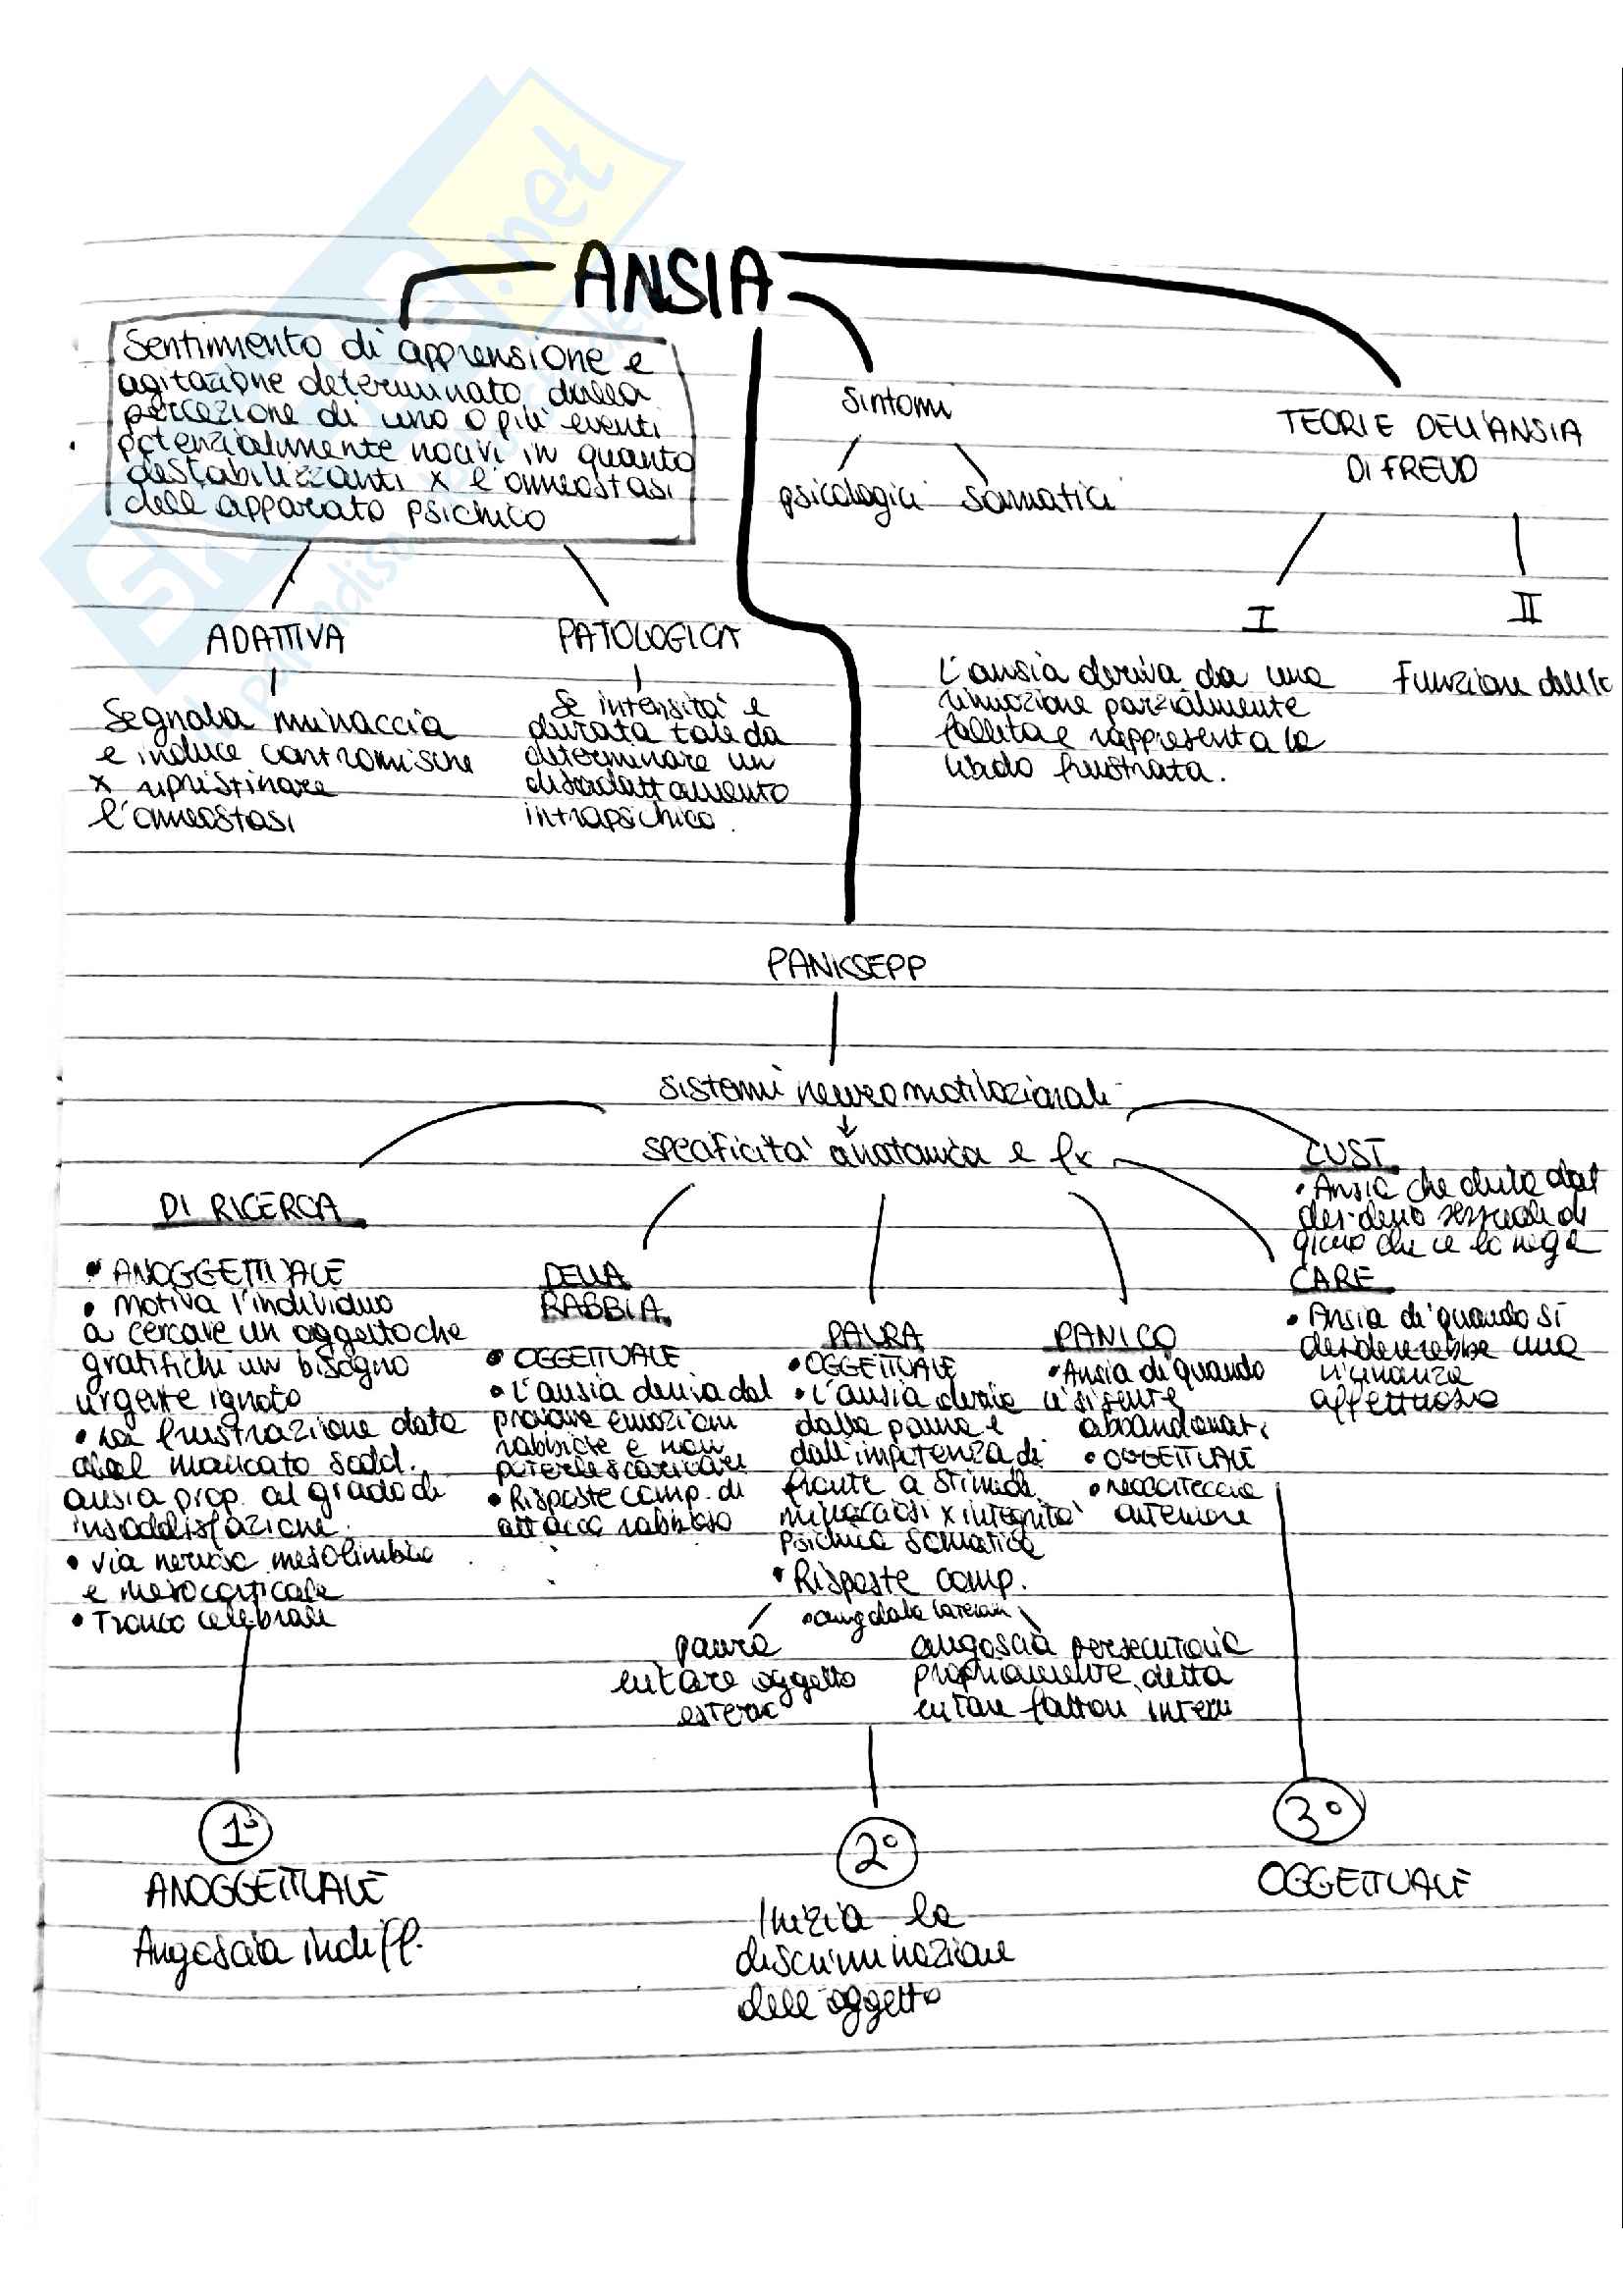 ANSIA
Sentimento di apprensione e
agitazione determinato dalla
percezione di uno o più eventi
potenzialmente nocivi in quanto
destabilizzanti x l'omeostasi
dell'apparato psichico
ADATTIVA
Segnala minaccia
e induce contromisure
x ripristinare
l'omeostasi
PATOLOGICA
Se intensità e
durata tale da
determinare un
disadattamento
intrapsichico.
sintomi
psicologici somatici
TEORIE DELL'ANSIA
DI FREUD
I
L'ansia deriva da una
rimozione parzialmente
fallita e rappresenta la
libido frustrata.
II
Funzione dell'Io
PANKSEPP
sistemi neuromotivazionali
specificità anatomica e fx
DI RICERCA
• ANOGGETTUALE
• Motiva l'individuo
a cercare un oggetto che
gratifichi un bisogno
urgente ignoto
• La frustrazione data
dal mancato sodd.
ansia prop. al grado di
insoddisfazione.
• via nervosa mesolimbica
e mesocorticale
• Tronco celebrale
DELLA
RABBIA
• OGGETTUALE
• L'ansia deriva dal
provare emozioni
rabbiose e non
poterle scaricare
• Risposte comp. di
attacco rabbioso
PAURA
• OGGETTUALE
• L'ansia deriva
dalla paura e
dall'impotenza di
fronte a stimoli
minacciosi x integrità
psichica somatica
• Risposte comp.
• amigdala laterale
paura
evitare oggetto
esterno
angoscia persecutoria
propriamente detta
evitare fattori interni
PANICO
• Ansia di quando
ci si sente
abbandonati
• OGGETTUALE
• neocorteccia
anteriore
LUST
• Ansia che deriva dal
desiderio sessuale di
che ce lo nega
CARE
• Ansia di quando si
desidererebbe una
vicinanza
affettuosa
1°
ANOGGETTUALE
Angoscia indiff.
2°
Inizia la
discriminazione
dell'oggetto
3°
OGGETTUALE